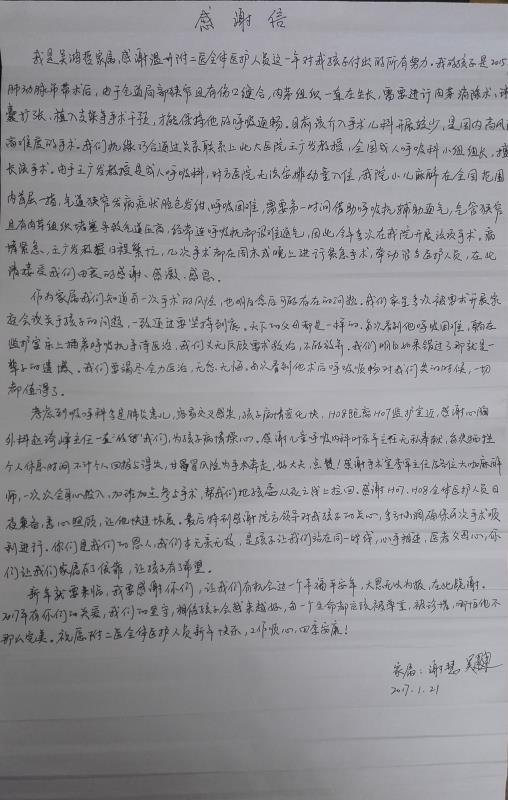 感谢信
我是吴鸿哲家属,感谢温州附二医全体医护人员这一年对我孩子付出的所有努力。我的孩子是2015
肺动脉吊带术后,由于气道局部狭窄且有伤口缝合,内芽组织一直在生长,需要进行内芽清除术、球
囊扩张、植入支架等手术干预,才能保持他的呼吸通畅。目前该介入手术儿科开展较少,是国内高风险
高难度的手术。我们机缘巧合通过关系联系上北大医院王广发教授,全国成人呼吸科小组组长,擅
长该手术。由于王广发教授是成人呼吸科,对方医院无法安排幼童入住,我院小儿麻醉在全国范围
内首屈一指,气道狭窄发病症状脸色发绀、呼吸困难,需要第一时间借助呼吸机辅助通气,气管狭窄
且有内芽组织堵塞导致气道压高,经常连呼吸机都很难通气,因此今年多次在我院开展该项手术,病
情紧急,王广发教授日程繁忙,几次手术都在周末或晚上进行紧急手术,牵动诸多医护人员,在此
请接受我们由衷的感谢、感激、感恩。
作为家属我们知道每一次手术的风险,也明白愈后可能存在的问题。我们家里多次被要求开展家
庭会议关于孩子的问题,一致通过要坚持到底。天下的父母都是一样的,每次看到他呼吸困难,躺在
监护室床上插着呼吸机手脚绑着,我们义无反顾要求救治,不能放弃,我们明白如果错过了那就是一
辈子的遗憾。我们要竭尽全力医治,无怨、无悔。每次看到他术后呼吸顺畅对我们笑的时候,一切
都值得了。
考虑到呼吸科多是肺炎患儿,容易交叉感染,孩子病情变化快,H08距离H07监护室近,感谢心胸
外科赵琦峰主任一直"收留"我们,为孩子病情操心。感谢儿童呼吸内科叶乐平主任无私奉献,每次牺牲
个人休息时间,不计个人回报与得失,甘冒风险为手术奔走,好大夫,点赞!感谢手术室李军主任及各位大咖麻醉
师,一次次全身心投入,加班加点参与手术,帮我们把孩子从死亡线上捡回。感谢H07、H08全体医护人员日
夜兼备,悉心照顾,让他快速恢复。最后特别感谢院方领导对我孩子的关心,多方协调确保每次手术顺
利进行。你们是我们的恩人,我们本无亲无故,是孩子让我们站在同一战线,心手相连,医者父母心,你
们让我们家属有了依靠,让孩子有了希望。
新年就要来临,我要感谢你们,让我们有机会过一个幸福平安年,大恩无以为报,在此锐谢。
2017年有你们的关爱,我们的坚守,相信孩子会越来越好,每一个生命都应该被尊重,被珍惜,哪怕他不
那么完美。祝愿附二医全体医护人员新年快乐,工作顺心,四季安康!
家属:谢慧
2017.1.21